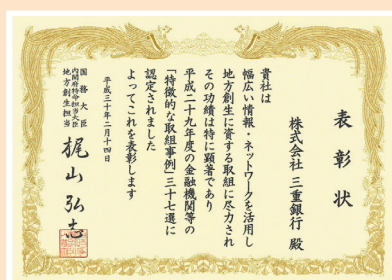 表彰状
株式会社 三重銀行 殿
貴社は
幅広い情報・ネットワークを活用し
地方創生に資する取組に尽力され
その功績は特に顕著であり
平成二十九年度の金融機関等の
「特徴的な取組事例」三十七選に
認定されました
よってこれを表彰します
平成三十年二月十四日
国務大臣
内閣府特命担当大臣
地方創生担当
梶山弘志